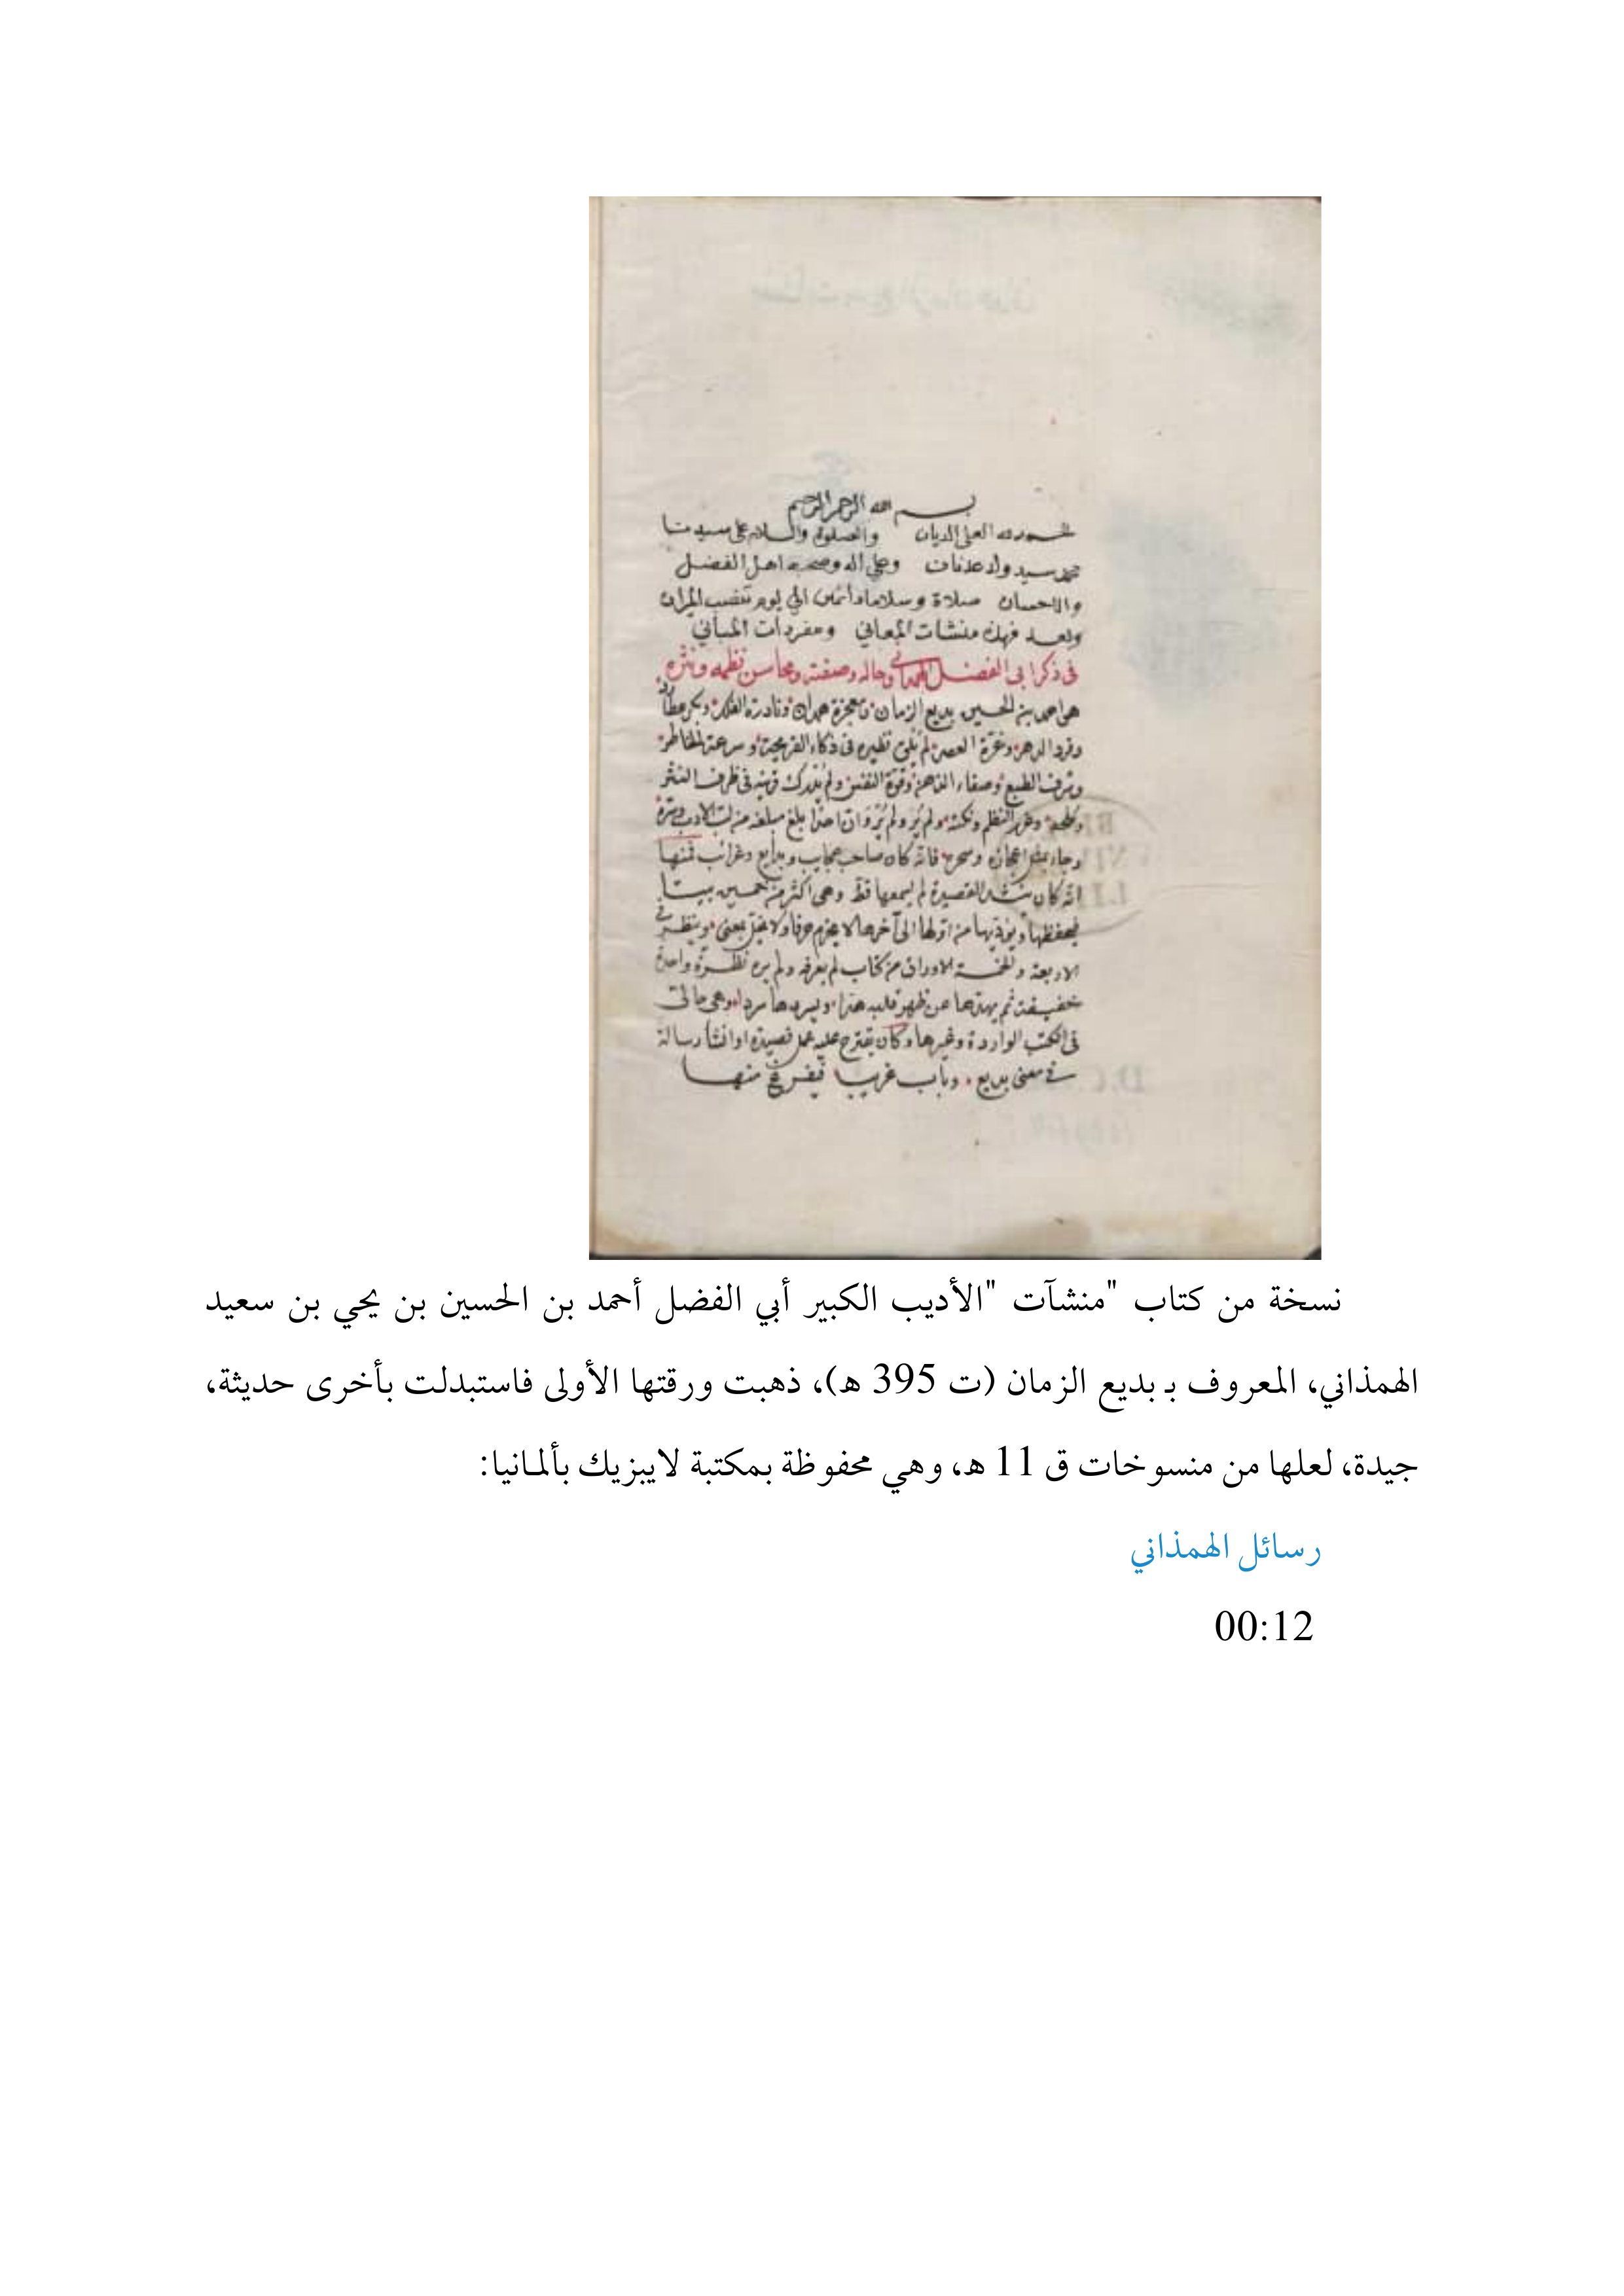 بسم الله الرحمن الرحيم
الحمد لله العلي الديان والصلوة والسلام على سيدنا
محمد سيد ولد عدنان وعلى اله وصحبه اهل الفضل
والاحسان صلاة وسلاما دائمين الي يوم تنصب الميزان
وبعد فهذه منشات المعاني ومفردات المباني
فى ذكر ابى الفضل الهمدانى وحاله وصفته ومحاسن نظمه ونثره
هو احمد بن الحسين بديع الزمان ومعجزة همدان ونادرة الفلك وبكر عطارد
وفرد الدهر وغرة العصر لم يلق نظيره فى ذكاء القريحة وسرعة الخاطر
وشرف الطبع وصفاء الذهن وقوة النفس ولم يدرك قرينه فى ظرف النثر
وملحه وغرر النظم ونكته ولم ير ولم يرو ان احدا بلغ مبلغه من لب الادب وسره
وجاء بمثل اعجازه وسحره فانه كان صاحب عجايب وبدايع وغرائب فمنها
انه كان ينشد القصيدة لم يسمعها قط وهى اكثر من خمسين بيتا
فيحفظها ويؤديها من اولها الى آخرها لا يخرم حرفا ولا يخل بمعنى وينظر فى
الاربعة والخمسة الاوراق من كتاب لم يعرفه ولم يره نظرة واحدة
خفيفة ثم يهذها عن ظهر قلبه هذا ويسردها سردا وهى حالته
فى الكتب الواردة وغيرها وكان يقترح عليه عمل قصيدة او انشا رسالة
فى معنى بديع وباب غريب فيفرغ منها
نسخة من كتاب "منشآت "الأديب الكبير أبي الفضل أحمد بن الحسين بن يحي بن سعيد
الهمذاني، المعروف بـ بديع الزمان (ت 395 هـ)، ذهبت ورقتها الأولى فاستبدلت بأخرى حديثة،
جيدة، لعلها من منسوخات ق 11 هـ، وهي محفوظة بمكتبة لايبزيك بألمانيا:
رسائل الهمذاني
00:12